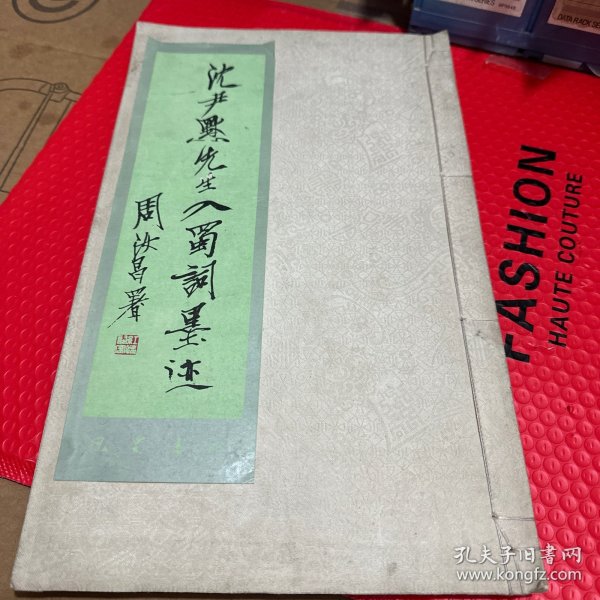 沈尹默先生入蜀詞墨迹
周汝昌署
FASHION
HAUTE COUTURE
DATA RACK SE
SERIES
孔夫子旧書网
www.kongfz.com